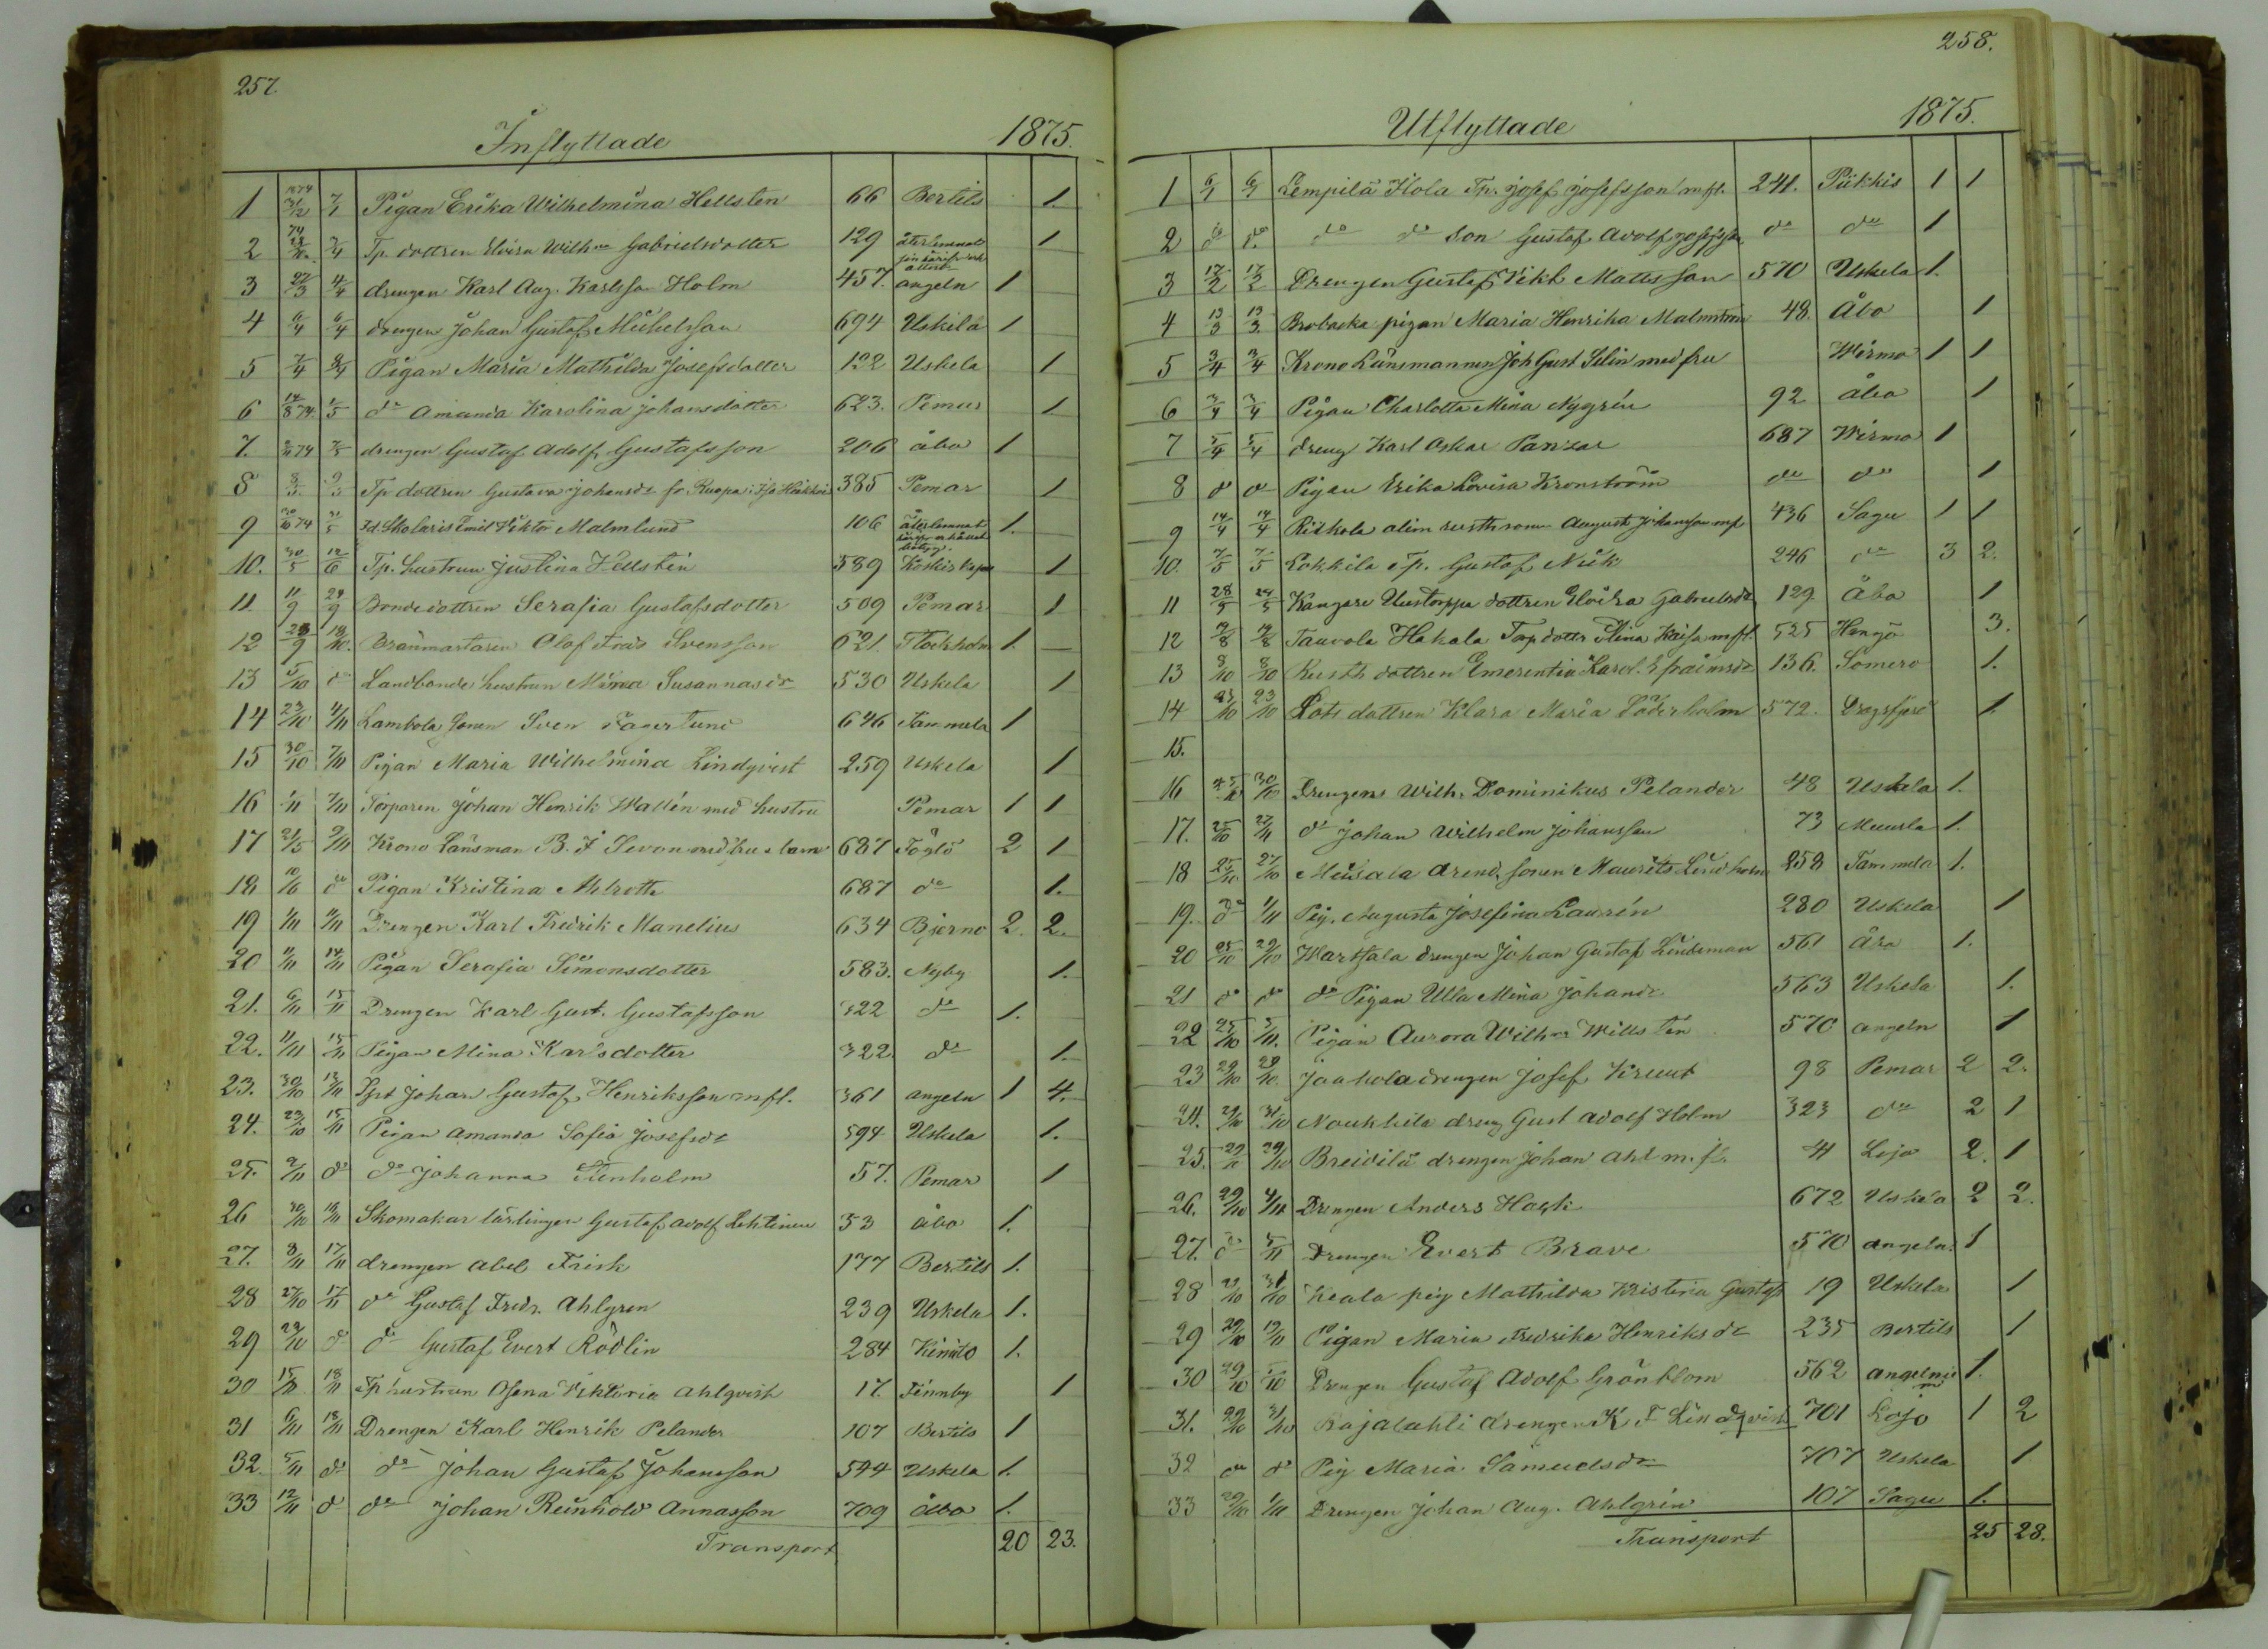 257.
Inflyttade 1875.
1 1874 31/12 7/1 Pigan Erika Wilhelmina Hellsten 66 Bertils 1.
2 74 Tp. dottren Elvira Wilhna Gabrielsdotter 129 återlemnat 1
3 27/3 4/4 drengen Karl Aug. Karlsson Holm 457. angeln 1
4 6/4 6/4 drengen Johan Gustaf Michelsson 694 Uskela 1
5 7/4 Pigan Maria Mathilda Josefsdotter 122 Uskela 1
6 14/8 74. 1/5 do Amanda Karolina Johansdotter 623. Pemar 1
7. 74 drengen Gustaf Adolf Gustafsson 206 åbo 1
8 Tp dottren Gustava Johansdr fr. Ruopa 385 Pemar 1
9 74 Skolaris Emil Viktor Malmlund 106 återlemnat 1.
10. 30/5 12/6 Tp. hustrun Justina Hellstén 589 Koskis 1
11 11/9 24/9 Bondedottren Serafia Gustafsdotter 509 Pemar 1
12 Brännmästaren Olof Svensson 621. Stockholm 1.
13 5/10 do Landbonde hustrun Mina Susannasdr 530 Uskela 1
14 23/10 4/11 Lambola sonen Sven Fagerlund 646 Tammela 1
15 30/10 7/11 Pigan Maria Wilhelmina Lindqvist 259 Uskela 1
16 1/11 7/11 Torparen Johan Henrik Wallén med hustru Pemar 1 1
17 21/5 9/11 Krono Länsman B. J. Sevon med fru o barn 687 Föglö 2 1
18 do Pigan Kristina Ahlroth 687 do 1.
19 1/11 Drengen Karl Fredrik Manelius 634 Bjerno 2. 2.
20 14/11 Pigan Serafia Simonsdotter 583. Nyby 1.
21. 6/11 15/11 Drengen Karl Gust. Gustafsson 322 do 1.
22. 11/11 15/11 Pigan Mina Karlsdotter 322. do 1.
23. 30/10 13/11 Johan Gustaf Henriksson mfl. 361 angeln 1 4.
24. 23/10 15/11 Pigan Amanda Sofia Josefsdr 594 Uskela 1.
25. 9/11 do do Johanna Stenholm 57. Pemar 1
26 30/10 16/11 Skomakar lärlingen Gustaf Adolf Lehtinen 53 åbo 1.
27. 8/11 17/11 drengen Abel Frisk 177 Bertils 1.
28 27/10 17/11 do Gustaf Fredr. Ahlgren 239 Uskela 1.
29 29/10 do do Gustaf Evert Rödlin 284 Kimito 1.
30 18/11 Tp hustrun Viktoria Ahlqvist 17. Finnby 1
31 6/11 18/11 Drengen Karl Henrik Pelander 107 Bertils 1
32. 5/11 do do Johan Gustaf Johansson 544 Uskela 1.
33 12/11 do do Johan Reinhold Annasson 709 åbo 1.
Transport 20 23.
258.
Utflyttade 1875.
1 6/1 6/1 Lempilä Flola Tp. Josef Josefsson mfl. 241. Pikkis 1 1
2 do do do do son Gustaf Adolf Josefsson do do 1
3 17/2 17/2 Drengen Gustaf Vikt Mattsson 570 Uskela 1.
4 13/3 13/3. Brobacka pigan Maria Henrika Malmström 48. Åbo 1
5 3/4 3/4 Krono Länsmannen Joh Gust Selin med fru Wirmo 1 1
6 3/4 3/4 Pigan Charlotta Mina Nygrén 92 åbo 1
7 5/4 5/4 dreng Karl Oskar Panzar 687 Wirmo 1
8 do do Pigan Erika Lovisa Kronström do do 1
9 14/4 14/4 Riskola August Johansson mfl 436 Sagu 1 1
10. 7/5 7/5 Lokkila Tp. Gustaf Nick 246 do 3 2.
11 28/5 Kangare dottren Elvira Gabrielsdr 129. Åbo 1
12 Tauvola Hakala Torp dottr Mina Kaisa mfl. 525 Hangö 3.
13 8/10 8/10 Rusth dottren Emerentia Karol. Efraimsdr 136. Somero 1.
14 23/10 23/10 Lots dottren Klara Maria Söderholm 572. Dragsfjerd 1.
15.
16 30/10 Drengen Wilh. Dominikus Pelander 48 Uskela 1.
17. 25/10 27/11 do Johan Wilhelm Johansson 73 Muurla 1.
18 25/10. 27/10 Arend. sonen Maurits Lindholm 258 Tammela 1.
19. do 1/11 Pig. Augusta Josefina Laurén 280 Uskela 1
20 25/10 29/10 Wartsala drengen Johan Gustaf Lindeman 561 1.
21 do do do Pigan Ulla Mina Johansdr 563 Uskela 1.
22 25/10 5/11. Pigan Aurora Wilhna Willstén 570 angeln 1
23 29/10 29/10. Jaakola drengen Josef Kruut 98 Pemar 2 2.
24. 29/10 31/10 Noukkila dreng Gust Adolf Holm 323 do 2 1
25. 29/10 Breidilä drengen Johan Ahl m.fl. 41 Lojo 2. 1
26. 29/10 4/11 Drengen Anders Haglt 672 Uskela 2 2.
27. do 5/11 Drengen Evert Brave 570 angeln. 1
28 29/10 31/10 Keala pig Mathilda Kristina Gustafs 19 Uskela 1
29 29/10 Pigan Maria Fredrika Henriksdr 235 Bertils 1
30 29/10 Drengen Gustaf Adolf Grönblom 562 angelniemi 1.
31. 29/10 31/10 Rajalahti drengen K F Lindqvist 701 Lojo 1 2
32 do do Pig Maria Samuelsdr 707 Uskela 1
33 29/10 1/11 Drengen Johan Aug. Ahlgrén 107 Sagu 1.
Transport 25 28.